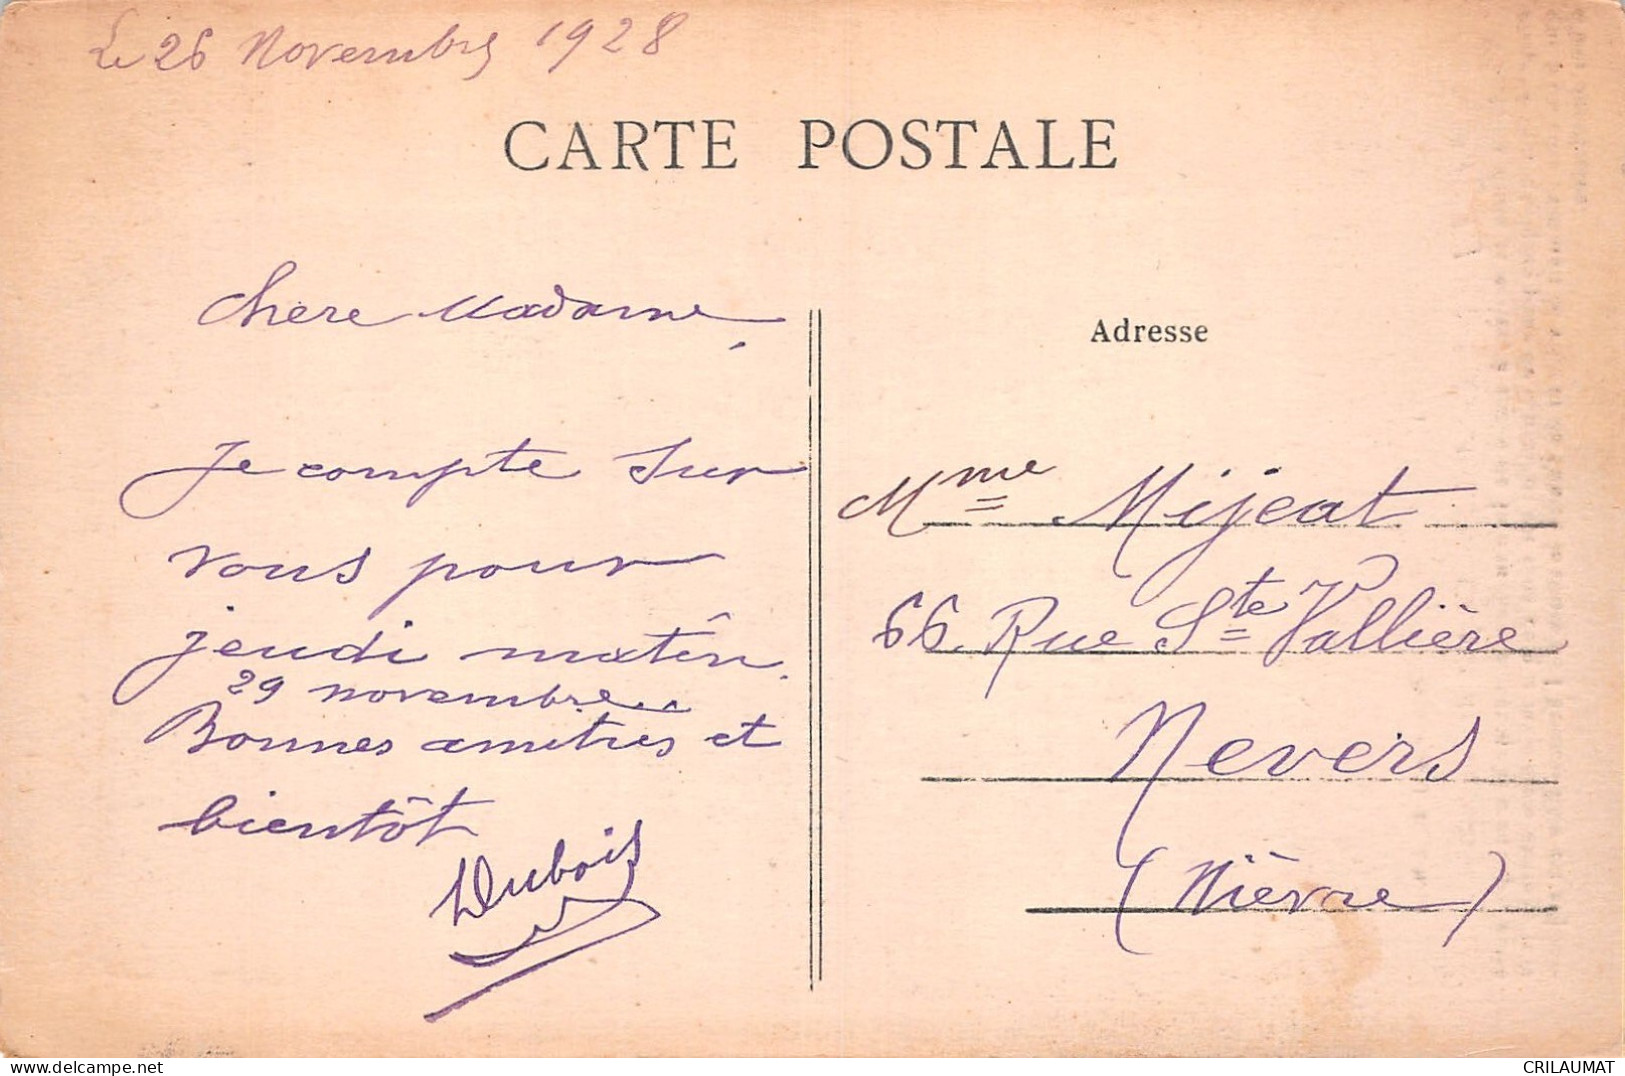 Le 26 Novembre 1928
CARTE POSTALE
Chere Madame,
Je compte sur
vous pour
jeudi matin.
29 novembre
Bonnes amitiés et
bientôt
Dubois
Adresse
Mme Mijeat
66. Rue Ste Vallière
Nevers
(Nièvre)
delcampe.net
CRILAUMAT